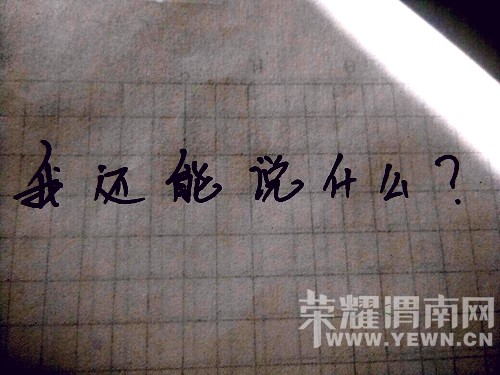 我还能说什么?
荣耀渭南网
WWW.YEWN.CN